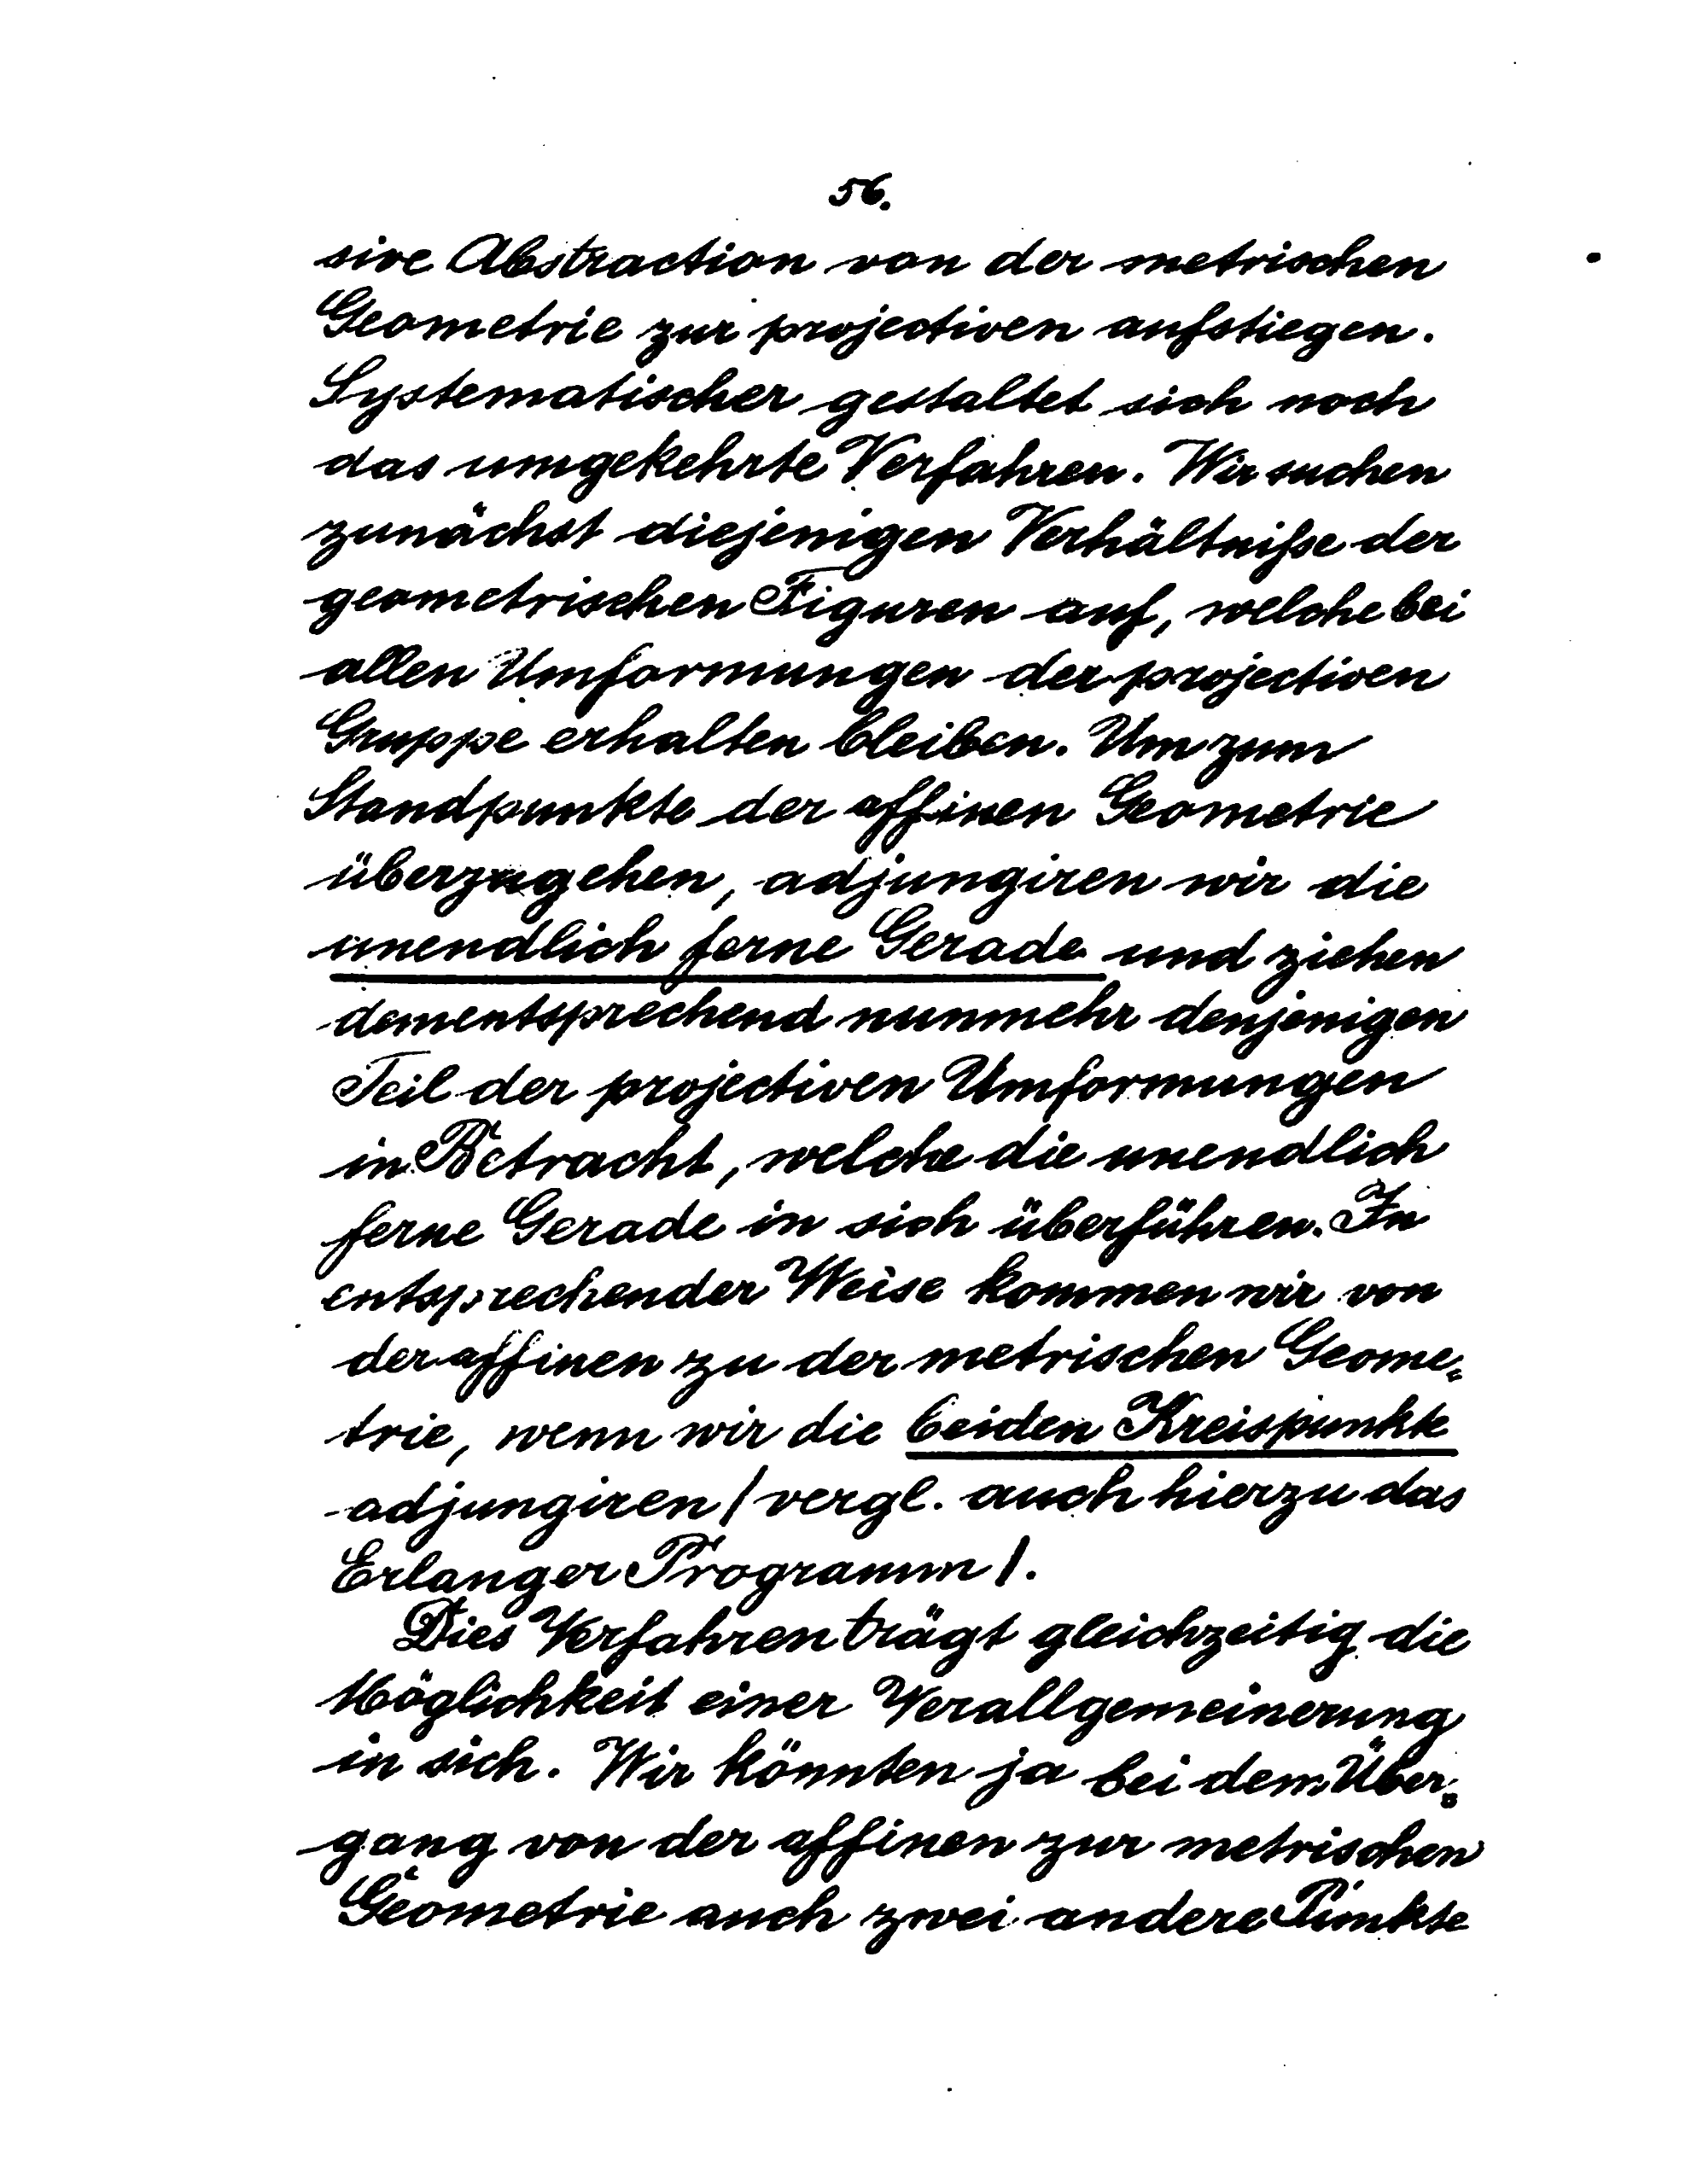 56.
sive Abstraction von der metrischen
Geometrie zur projectiven aufstiegen.
Systematischer gestaltet sich noch
das umgekehrte Verfahren. Wir suchen
zunächst diejenigen Verhältniſse der
geometrischen Figuren auf, welche bei
allen Umformungen der projectiven
Gruppe erhalten bleiben. Um zum
Standpunkte der affinen Geometrie
überzugehen, adjungiren wir die
unendlich ferne Gerade und ziehen
dementsprechend nunmehr denjenigen
Teil der projectiven Umformungen
in Betracht, welche die unendlich
ferne Gerade in sich überführen. In
entsprechender Weise kommen wir von
der affinen zu der metrischen Geome=
trie, wenn wir die beiden Kreispunkte
adjungiren / vergl. auch hierzu das
Erlanger Programm /.
Dies Verfahren trägt gleichzeitig die
Möglichkeit einer Verallgemeinerung
in sich. Wir könnten ja bei dem Über=
gang von der affinen zur metrischen
Geometrie auch zwei andere Punkte